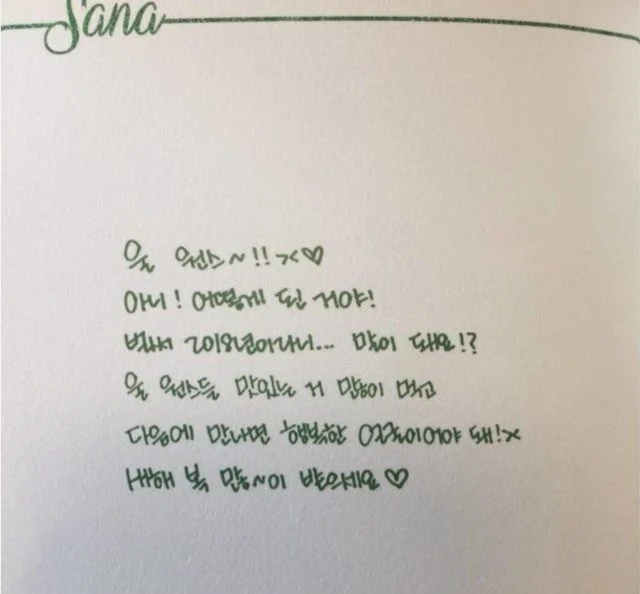 Sana
웅 원스~!! >< ♡
아니! 어떻게 된 거야!
벌써 2018년이라니... 말이 돼요!?
웅 원스들 맛있는 거 많이 먹고
다음에 만나면 행복한 얼굴이어야 돼!><
새해 복 많~이 받으세요 ♡